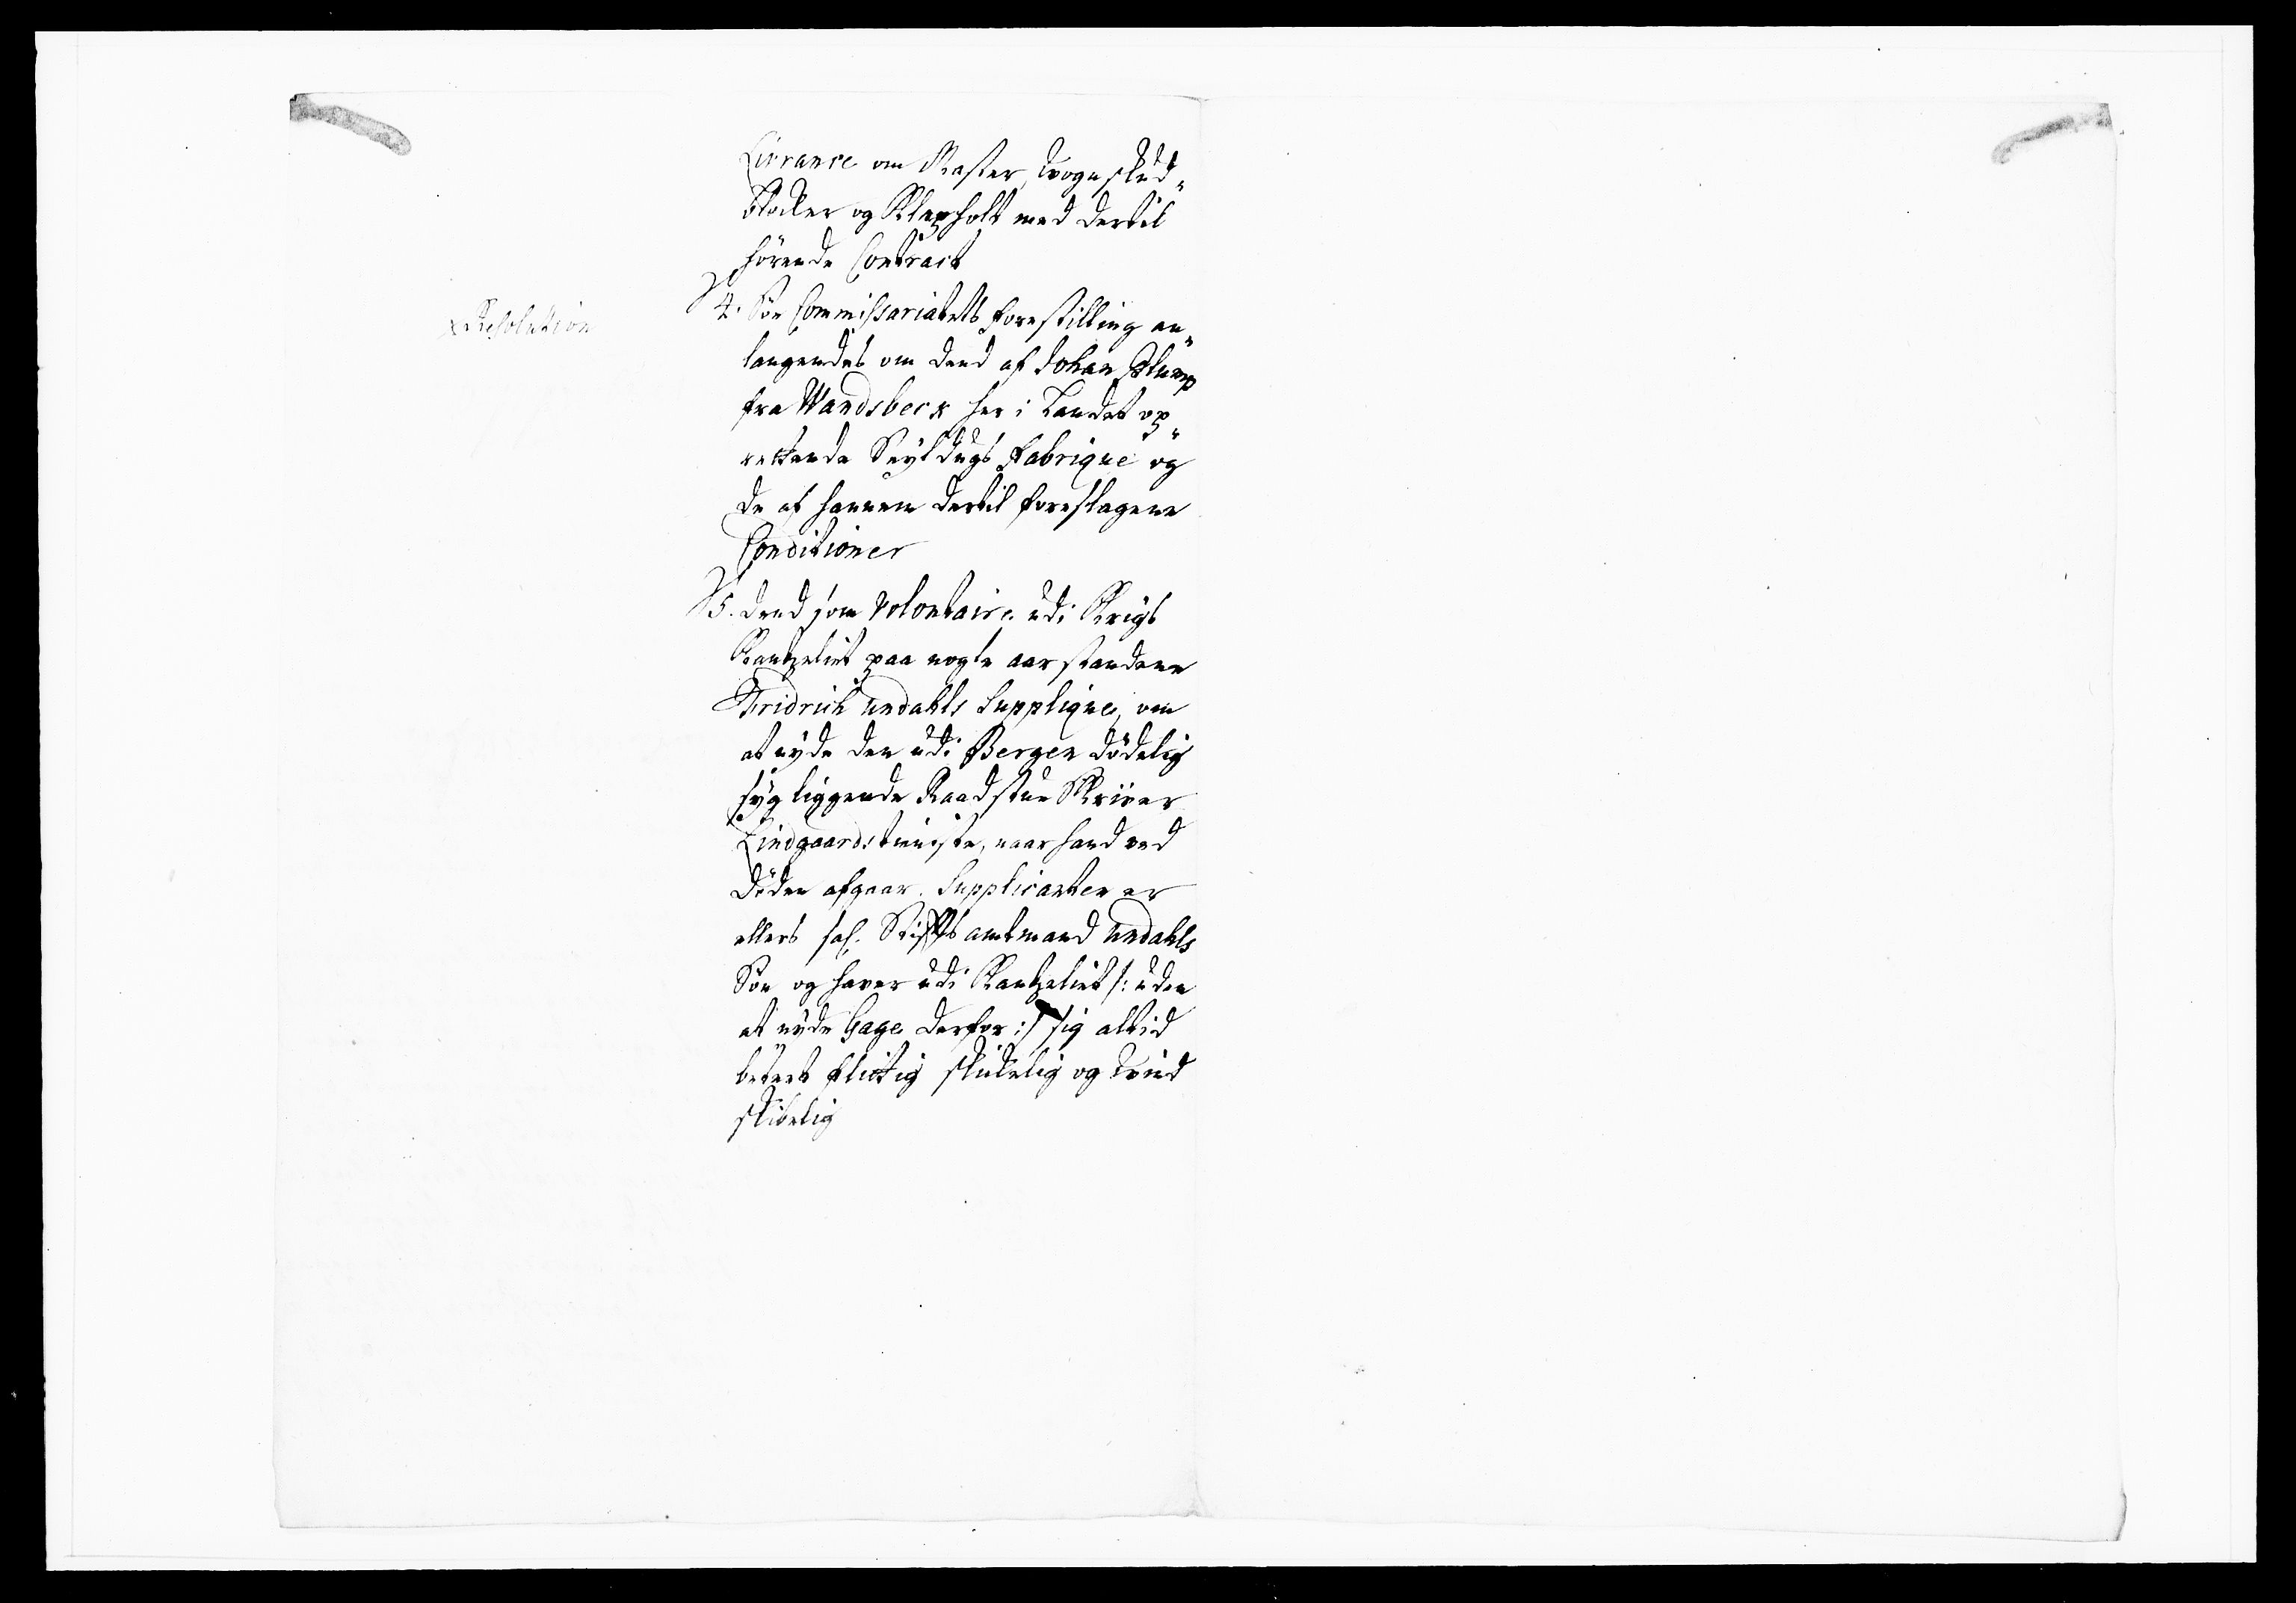 Livrance om Master, Vognskud-
blocker og Klapholt med dertil
hörende Contract
4. Söe Commissariatets forestilling an-
x Resolution
langendes om dend af Johan Plump
fra Wandsbeck her i Landet op-
rettende Seyldugs Fabrique og
de af hannem dertil foreslagene
Conditioner
5. Dend som Volontaire udi Krigs
Kantzeliet paa nogle aar standene
Fridrich Undahls Supplique, om
at nyde den udi Bergen dödelig
syg liggende Raadstue Skriver
Lindgaards tieniste, naar hand ved
Döden afgaar. Supplicanten er
ellers sal. Stiftsamtmand Undahls
Sön og haver udi Kantzeliet /: uden
at nyde Gage derfor :/ sig altid
beteet flittig skickelig og Vind
skibelig